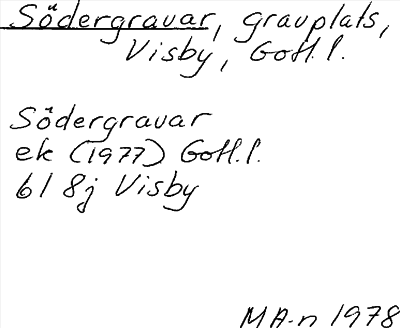 Södergravar, gravplats,
Visby, Gotl. l.
Södergravar
ek (1977) Gotl. l.
6I 8j Visby
MA-n 1978